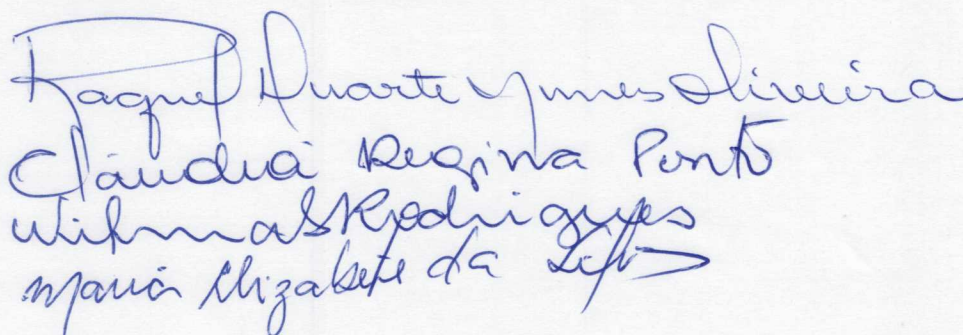 Raquel Duarte Yunes Oliveira
Cláudia Regina Ponto
Wilma S Rodrigues
Maria Elizabete da